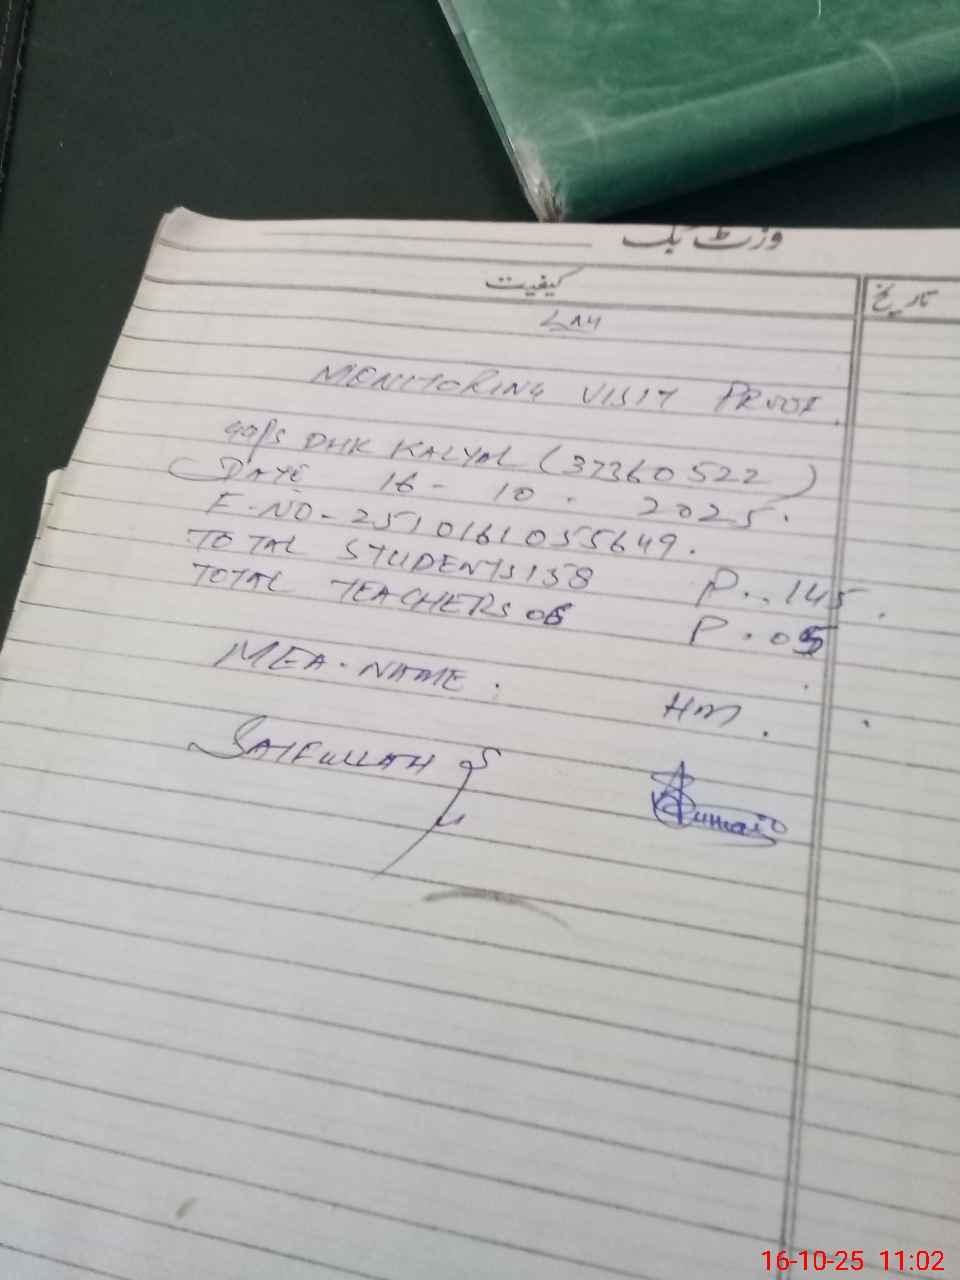 وزٹ بک
کیفیت
تاریخ
MENITORING VISIT PROOF.
GGPS DHK KALYAL (37360522)
DATE 16 - 10 . 2025.
F-NO-2510161055649.
TOTAL STUDENTS 158 P..145.
TOTAL TEACHERS 06 P.05
MEA.NAME. HM.
SAIFULLAH
16-10-25 11:02